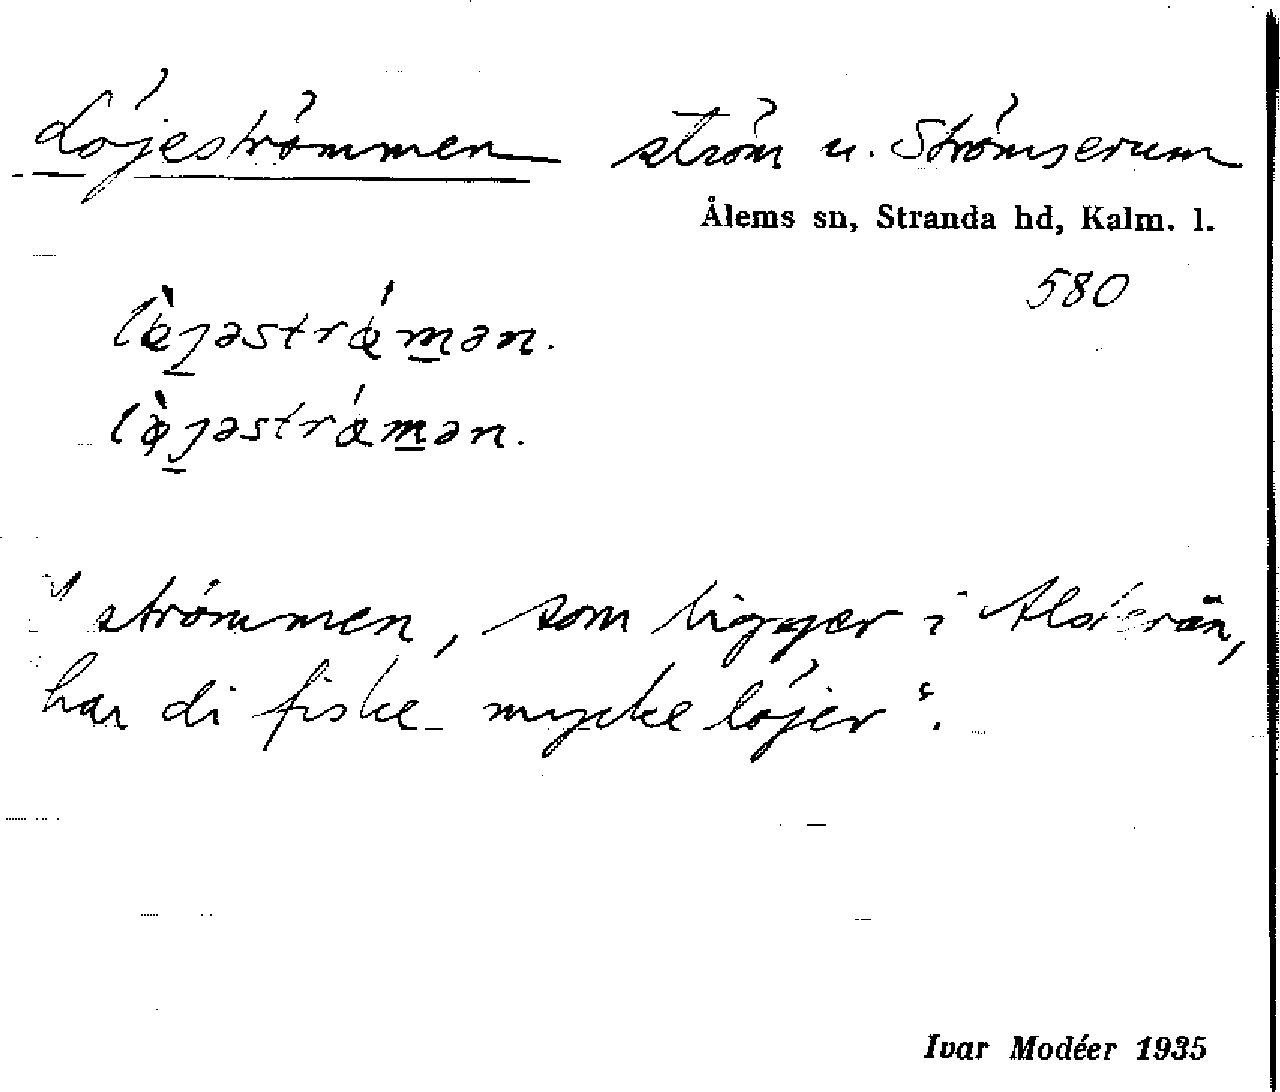 Löjeströmmen ström u. Strömserum
Ålems sn, Stranda hd, Kalm. l.
580
lœ̀jəstrœ́mən.
lø̀jəstrœ́mən.
"strömmen, som ligger i Alsterån,
har di fiske mycke löjer".
Ivar Modéer 1935